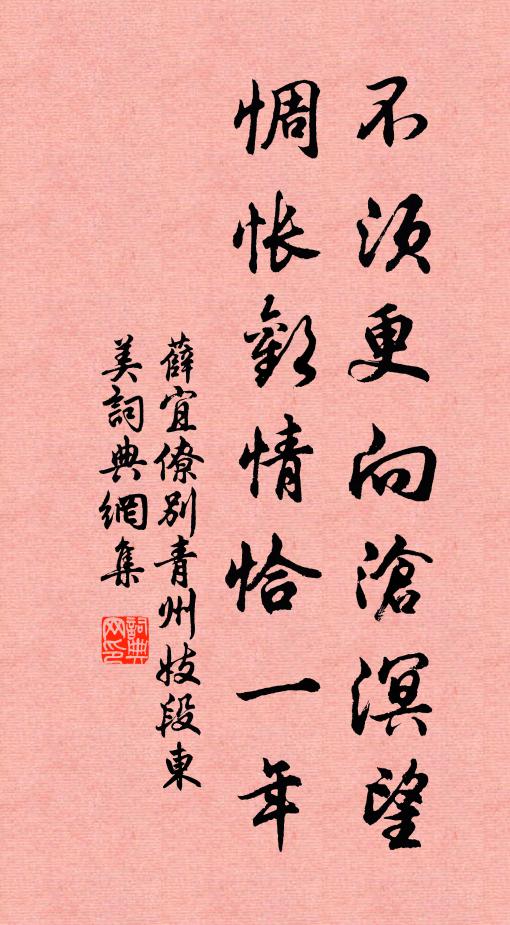 不須更向滄溟望
惆悵歡情恰一年
薛宜僚別青州妓段東
美詞典網集
詞典網印